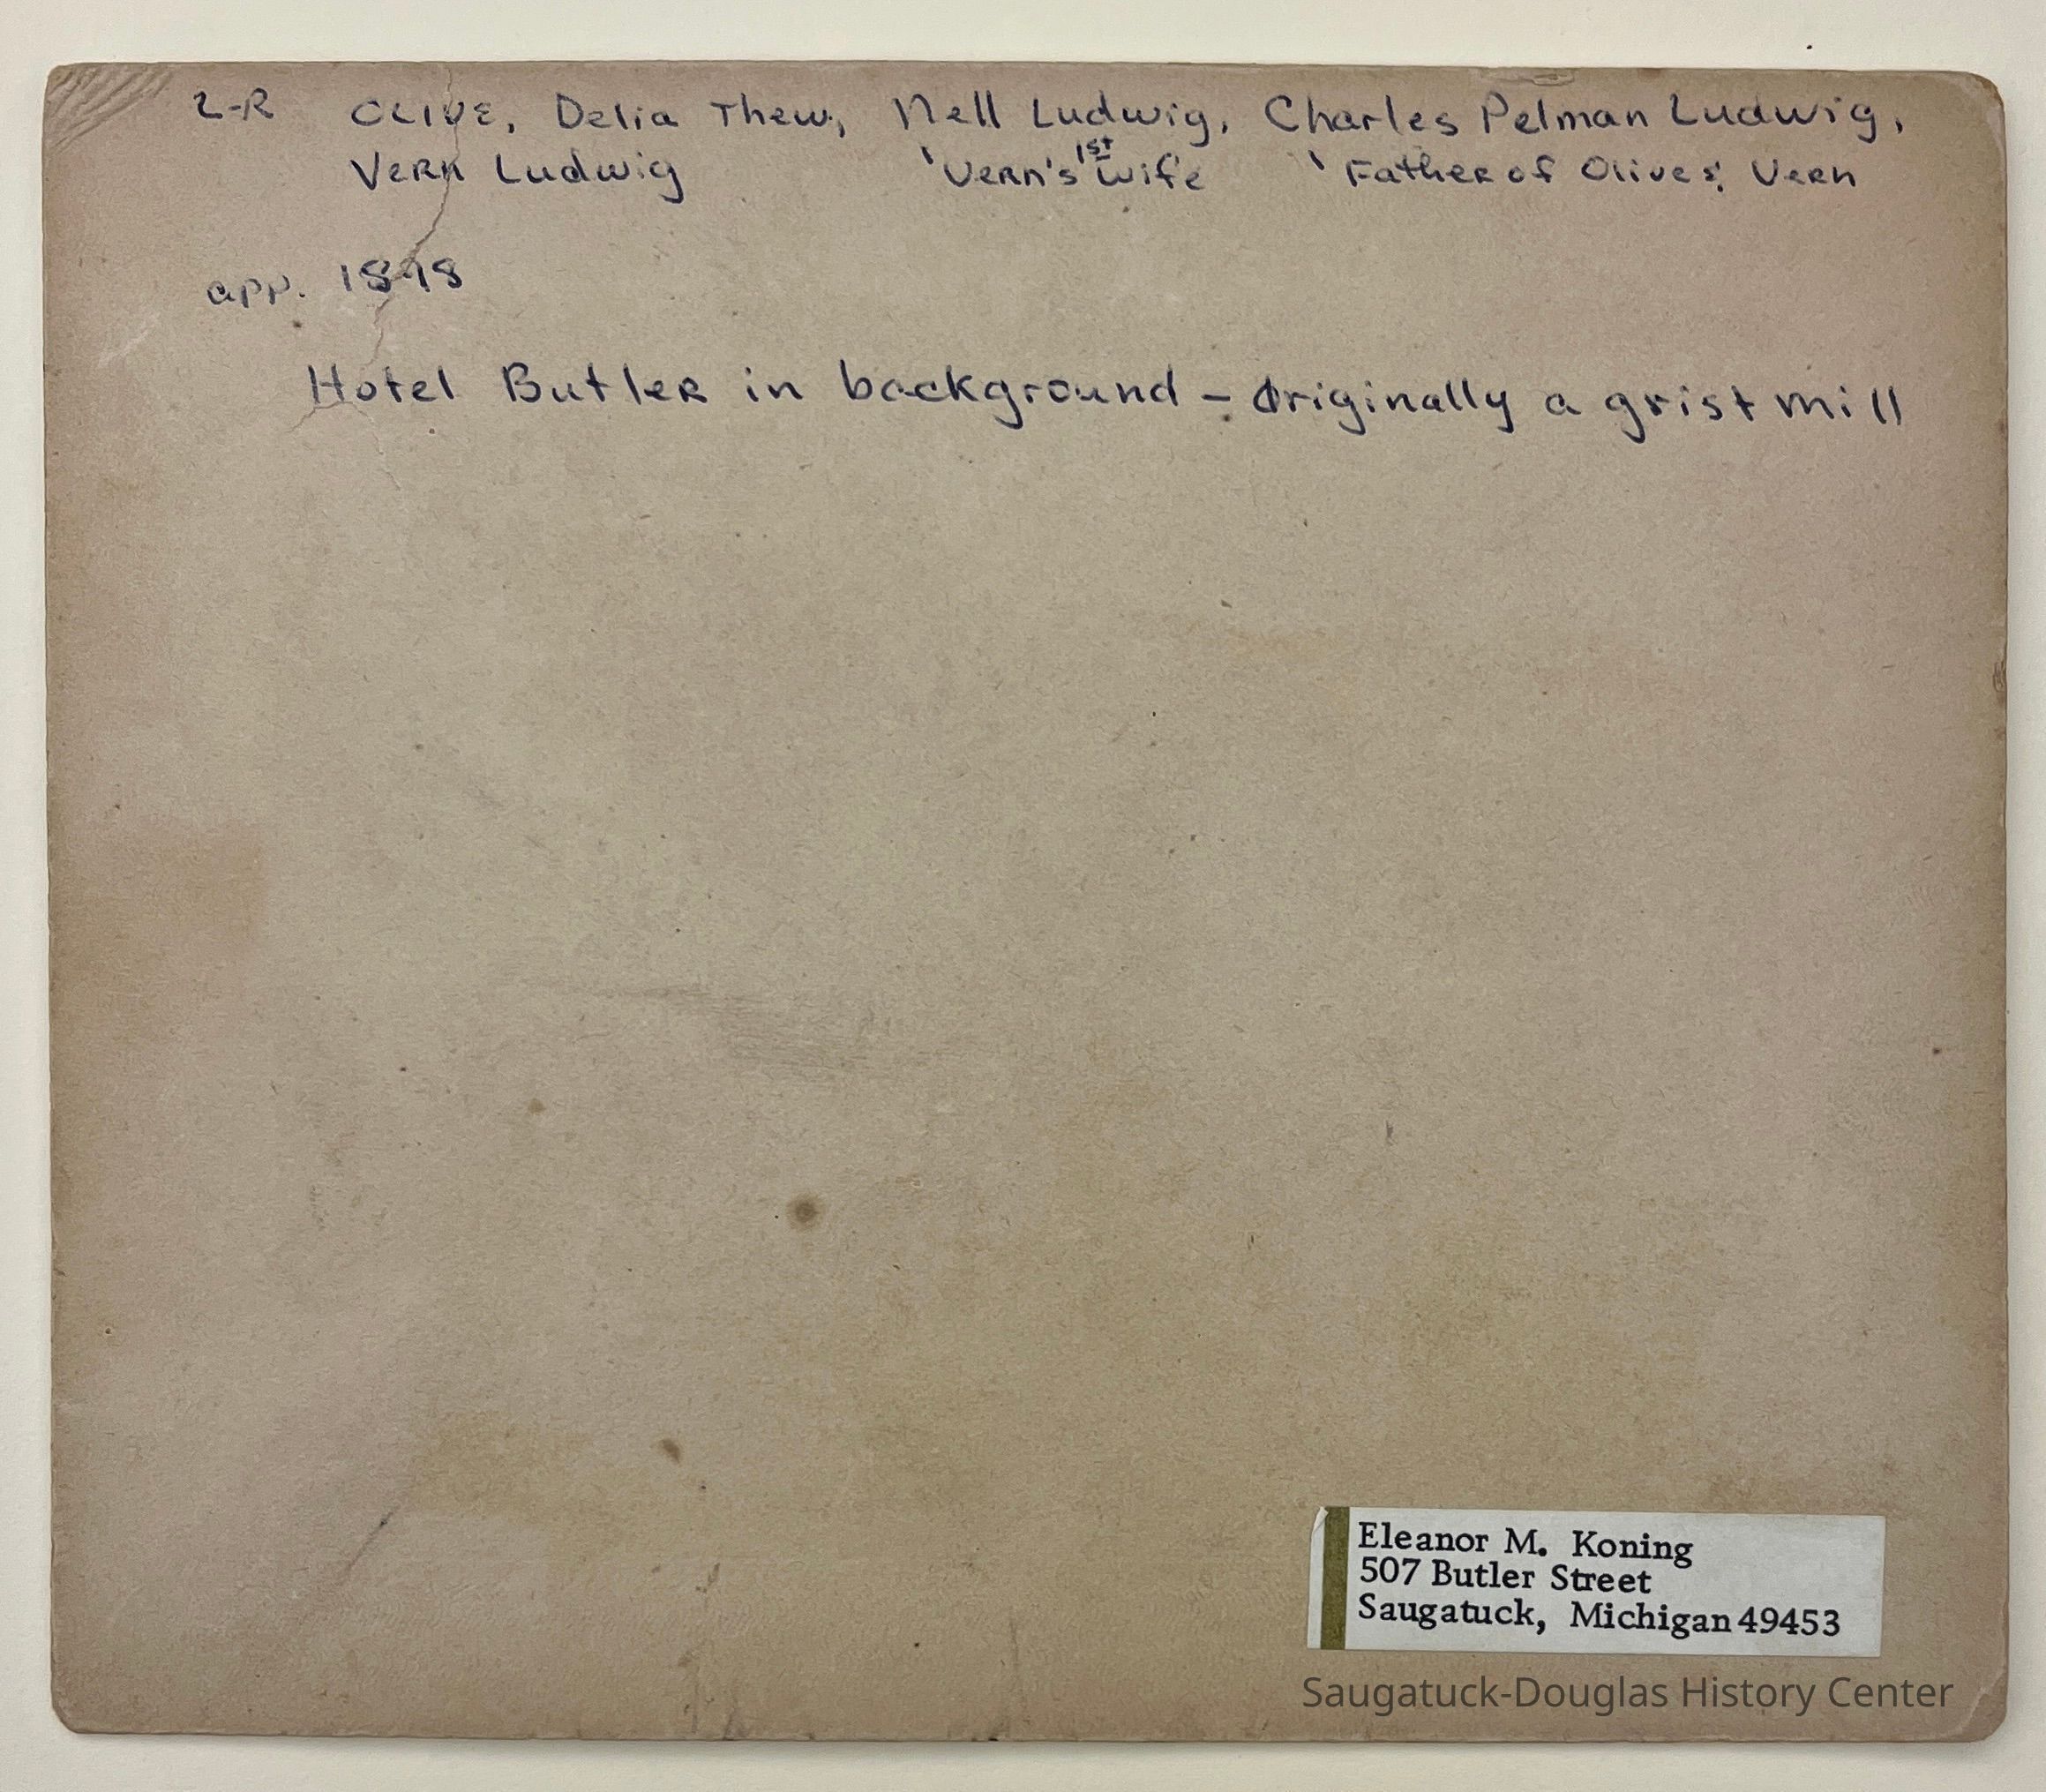 L-R OLIVE, Delia Thew, Nell Ludwig, Charles Pelman Ludwig,
Vern Ludwig 'Vern's 1st wife 'Father of Olives; Vern
app. 1898
Hotel Butler in background - Originally a grist mill
Eleanor M. Koning
507 Butler Street
Saugatuck, Michigan 49453
Saugatuck-Douglas History Center